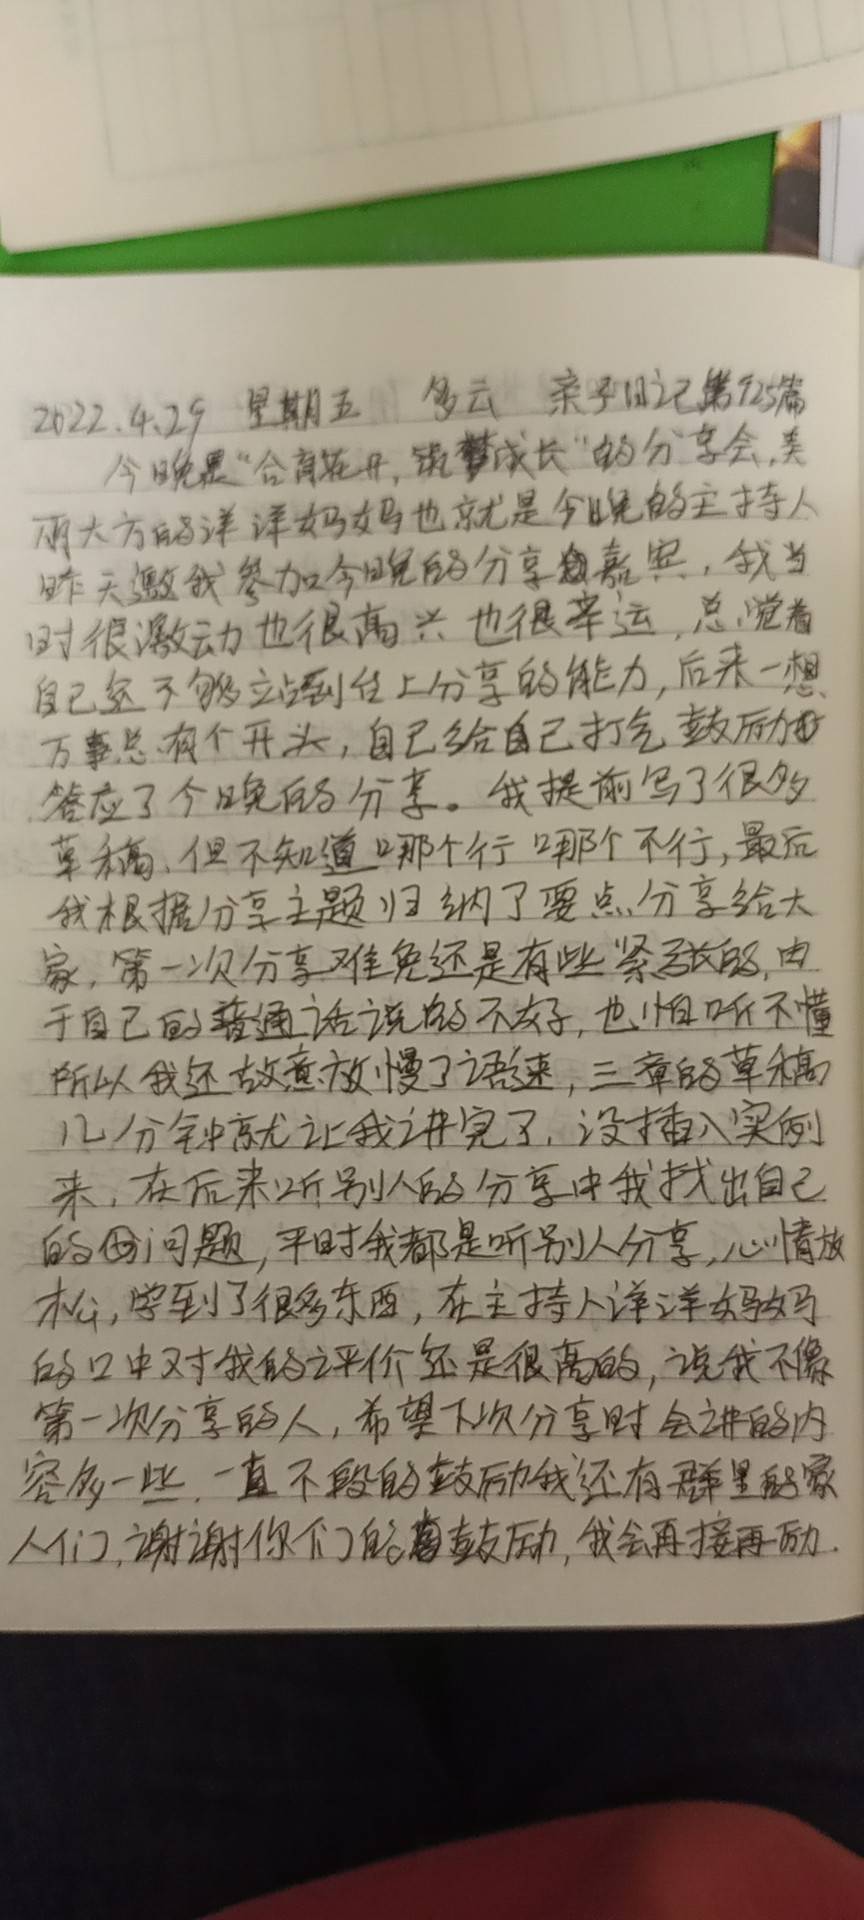 2022.4.29 星期五 多云 亲子日记第925篇
今晚是“合育花开,筑梦成长”的分享会,美
丽大方的洋洋妈妈也就是今晚的主持人
昨天邀我参加今晚的分享嘉宾,我当
时很激动也很高兴也很幸运,总觉着
自己还不够站到台上分享的能力,后来一想
万事总有个开头,自己给自己打气鼓励
答应了今晚的分享。我提前写了很多
草稿、但不知道哪个行哪个不行,最后
我根据分享主题归纳了要点分享给大
家,第一次分享难免还是有些紧张的,由
于自己的普通话说的不好,也怕听不懂
所以我还故意放慢了语速,三章的草稿
几分钟就让我讲完了,没插入实例
来,在后来听别人的分享中我找出自己
的问题,平时我都是听别人分享,心情放
松,学到了很多东西,在主持人洋洋妈妈
的口中对我的评价还是很高的,说我不像
第一次分享的人,希望下次分享时会讲的内
容多一些,一直不段的鼓励我还有群里的家
人们,谢谢你们的鼓励,我会再接再励.